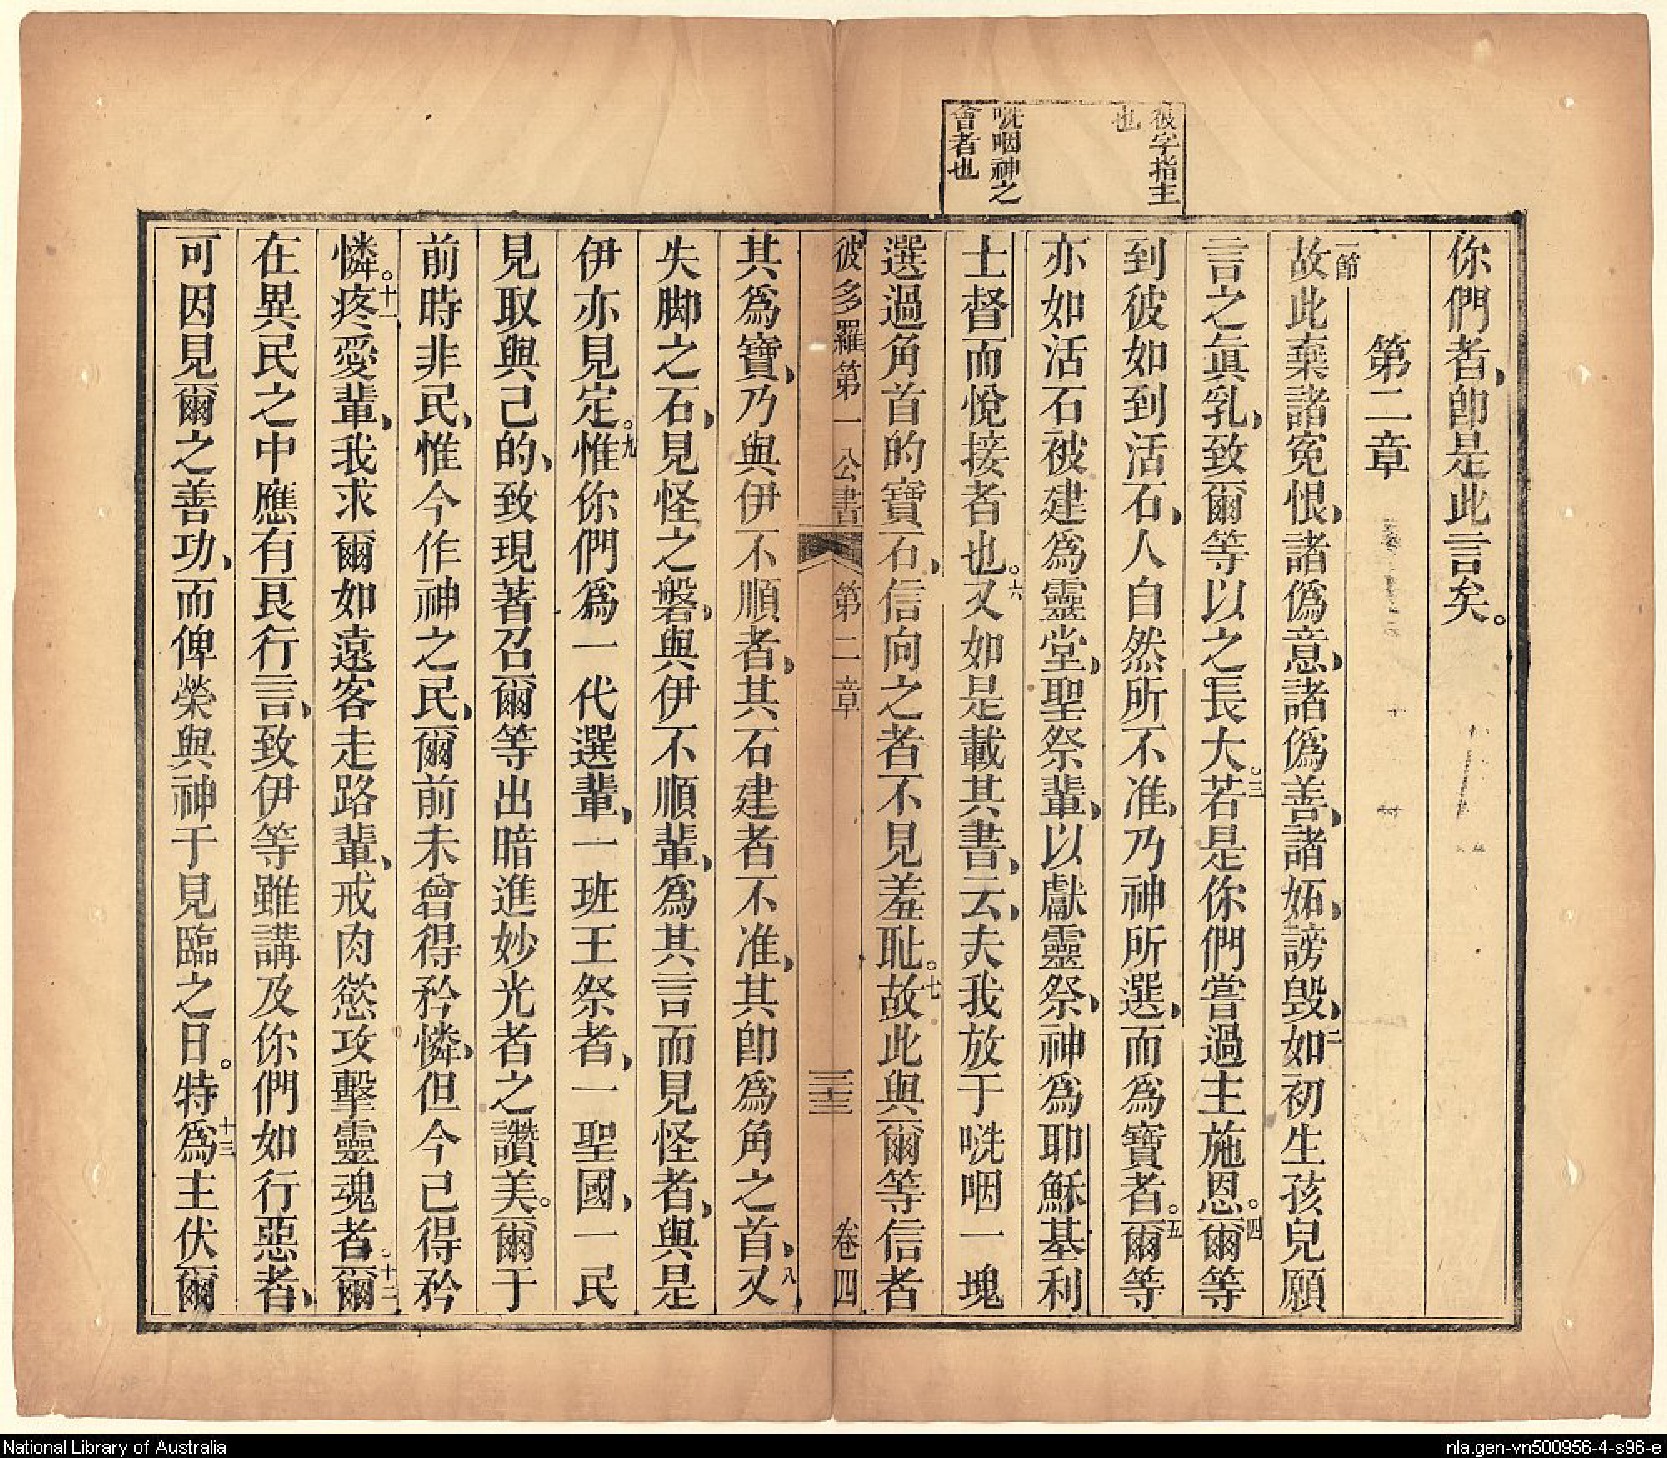 彼字指主
也
𠹵咽神之
會者也
你們者、卽是此言矣。
第二章
一節
故此棄諸寃恨、諸僞意、諸僞善、諸妬、謗毀、二如初生孩兒願
言之眞乳、致爾等以之長大。三若是你們嘗過主施恩。四爾等
到彼如到活石、人自然所不准、乃神所選、而爲寶者。五爾等
亦如活石被建爲靈堂、聖祭輩、以獻靈祭、神爲耶穌基利
士督而悅接者也。六又如是載其書、云、夫我放于𠹵咽一塊
選過角首的寶石、信向之者不見羞耻。七故此與爾等信者
彼多羅第一公書 第二章 三十三 卷四
其爲寶、乃與伊不順者、其石建者不准、其卽爲角之首。八又
失脚之石、見怪之磐、與伊不順輩、爲其言而見怪者、與是
伊亦見定。九惟你們爲一代選輩、一班王祭者、一聖國、一民
見取與己的、致現著召爾等出暗進妙光者之讚美。爾于
前時非民、惟今作神之民、爾前未曾得矜憐、但今已得矜
憐。十一疼愛輩、我求爾如遠客走路輩、戒肉慾攻擊靈魂者、十二爾
在異民之中應有良行言、致伊等雖講及你們如行惡者、
可因見爾之善功、而俾榮與神于見臨之日。十三特爲主伏爾
National Library of Australia
nla.gen-vn500956-4-s96-e